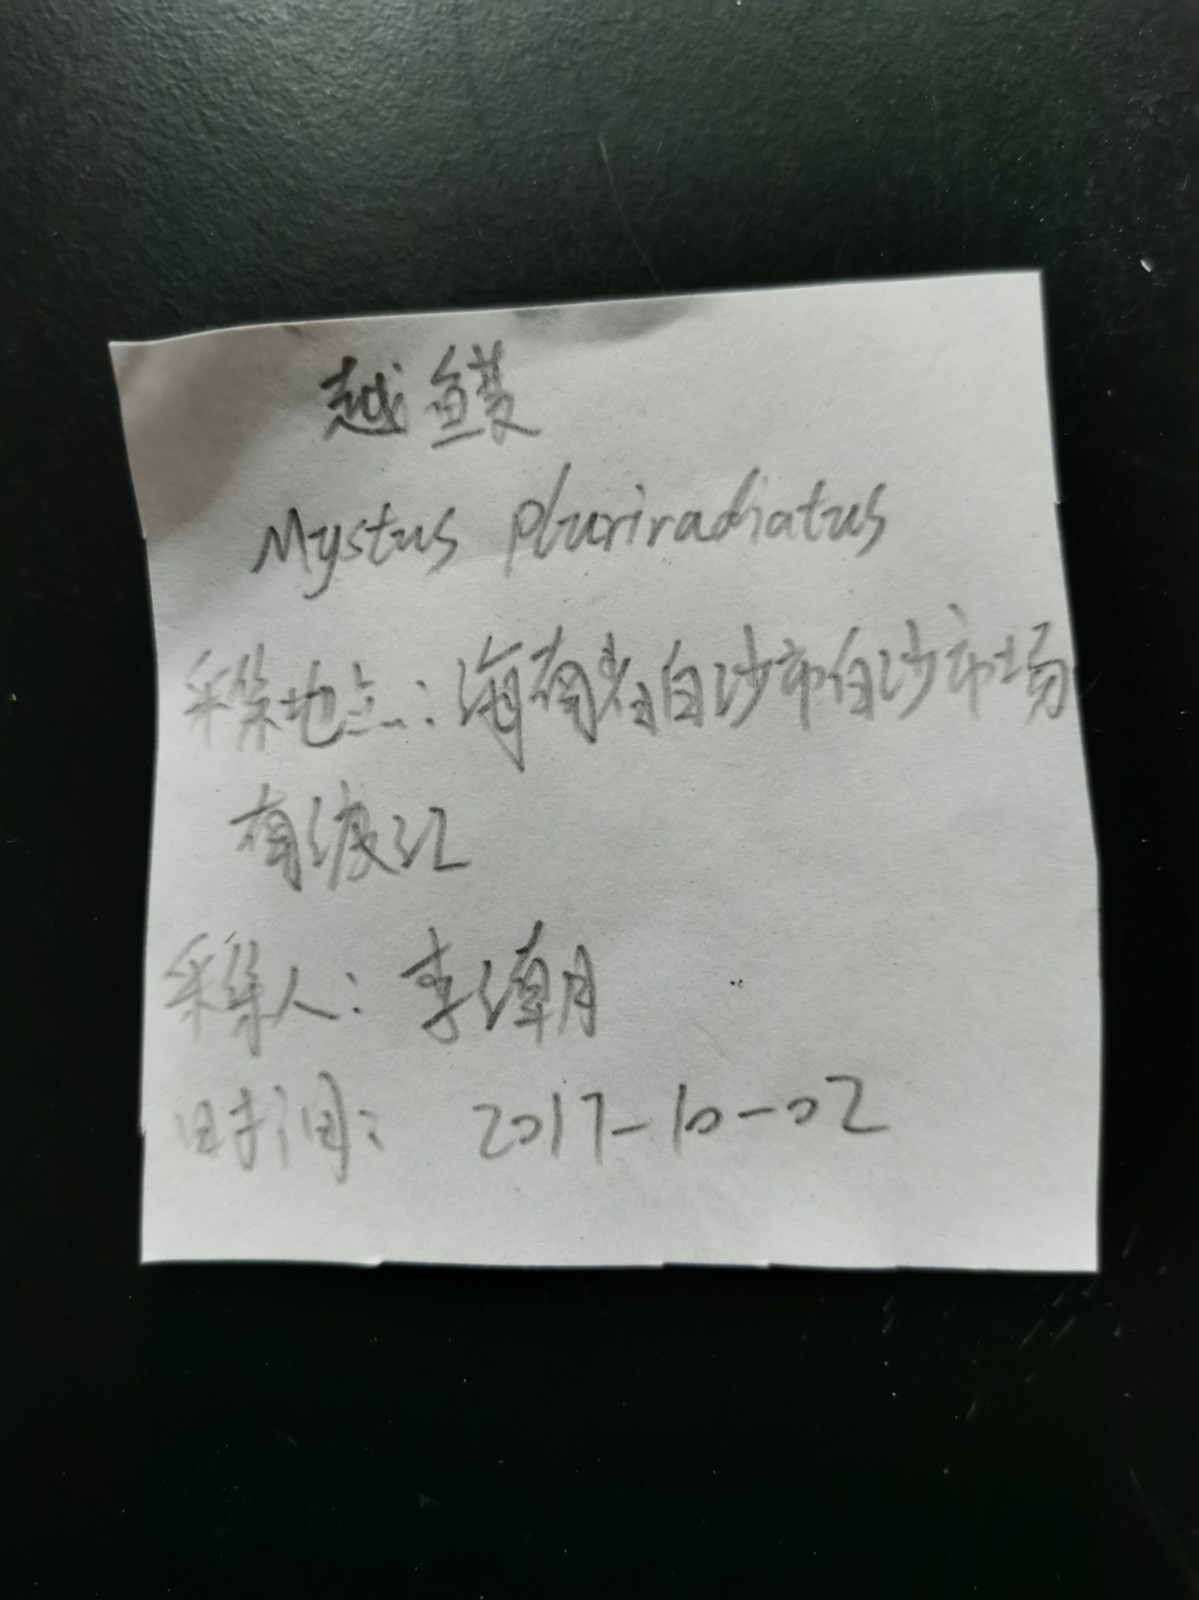 越鳠
Mystus pluriradiatus
采集地点：海南省白沙市白沙市场
南渡江
采集人：李潮
时间：2017-10-02